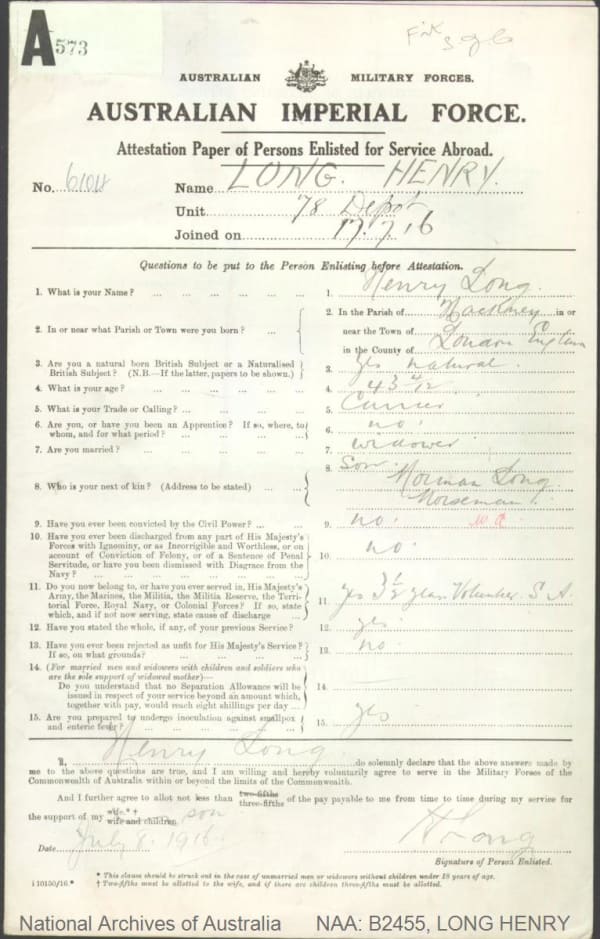 A 573
AUSTRALIAN MILITARY FORCES.
AUSTRALIAN IMPERIAL FORCE.
Attestation Paper of Persons Enlisted for Service Abroad.
No. Name LONG. HENRY.
Unit 78 Depot
Joined on 17.7.16
Questions to be put to the Person Enlisting before Attestation.
1. What is your Name? ... ... ... ... ... 1. Henry Long.
2. In or near what Parish or Town were you born? ... 2. In the Parish of Hackney in or
near the Town of London
in the County of England
3. Are you a natural born British Subject or a Naturalised British Subject? (N.B.—If the latter, papers to be shown.) 3. Yes natural.
4. What is your age? ... ... ... ... ... 4. 43 4/12
5. What is your Trade or Calling? ... ... ... ... 5. Currier
6. Are you, or have you been an Apprentice? If so, where, to whom, and for what period? ... ... ... ... 6. no
7. Are you married? ... ... ... ... ... 7. widower
8. Who is your next of kin? (Address to be stated) ... ... 8. Son
Norman Long
Norseman
W.A.
9. Have you ever been convicted by the Civil Power? ... ... 9. no.
10. Have you ever been discharged from any part of His Majesty's
Forces with Ignominy, or as Incorrigible and Worthless, or on
account of Conviction of Felony, or of a Sentence of Penal
Servitude, or have you been Dismissed with Disgrace from the
Navy? ... ... ... ... ... 10. no.
11. Do you now belong to, or have you ever served in, His Majesty's
Army, the Marines, the Militia, the Militia Reserve, the Terri-
torial Force, Royal Navy, or Colonial Forces? If so, state
which, and if not now serving, state cause of discharge ... 11. yes 3½ years Volunteer S A.
12. Have you stated the whole, if any, of your previous Service? 12. yes
13. Have you ever been rejected as unfit for His Majesty's Service?
If so, on what grounds? ... ... ... ... 13. no
14. (For married men and widowers with children and soldiers who
are the sole support of widowed mother)—
Do you understand that no Separation Allowance will be
issued in respect of your service beyond an amount which,
together with pay, would reach eight shillings per day ... 14.
15. Are you prepared to undergo inoculation against smallpox
and enteric fever? ... ... ... ... 15. yes
I, Henry Long do solemnly declare that the above answers made by
me to the above questions are true, and I am willing and hereby voluntarily agree to serve in the Military Forces of the
Commonwealth of Australia within or beyond the limits of the Commonwealth.
And I further agree to allot not less than two-fifths three-fifths of the pay payable to me from time to time during my service for
the support of my wife.*† wife and children son
Date July 8. 1916 H Long
Signature of Person Enlisted.
* This clause should be struck out in the case of unmarried men or widowers without children under 18 years of age.
i 10150/16.* † Two-fifths must be allotted to the wife, and if there are children three-fifths must be allotted.
National Archives of Australia NAA: B2455, LONG HENRY